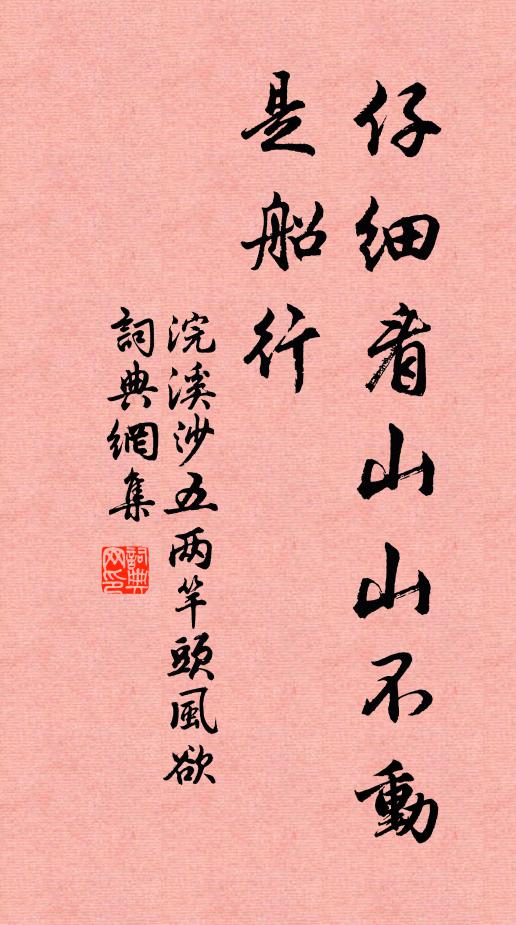 仔细看山山不動
是船行
浣溪沙五两竿頭風欲
詞典網集
詞典网印